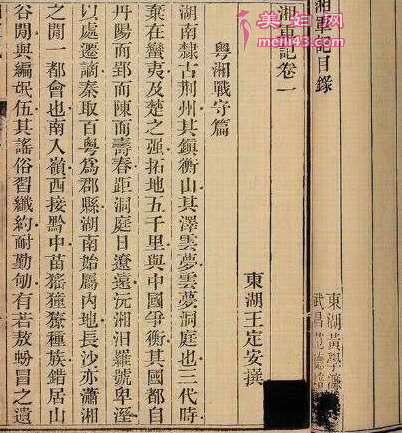 美妇网
meili43.com
湘軍記目錄
東湖黃學
武昌
湘軍記卷一
東湖王定安撰
粵湘戰守篇
湖南隸古荆州其鎮衡山其澤雲夢雲夢洞庭也三代時
棄在蠻夷及楚之强拓地五千里與中國爭衡其國都自
丹陽而郢而陳而壽春距洞庭日遼遠沅湘汨羅號卑溼
以處遷謫秦取百粵爲郡縣湖南始屬內地長沙亦瀟湘
之閒一都會也南入嶺西接黔中苗猺獞獠種族錯居山
谷閒與編氓伍其謠俗習纖約耐勤劬有若敖蚡冒之遺